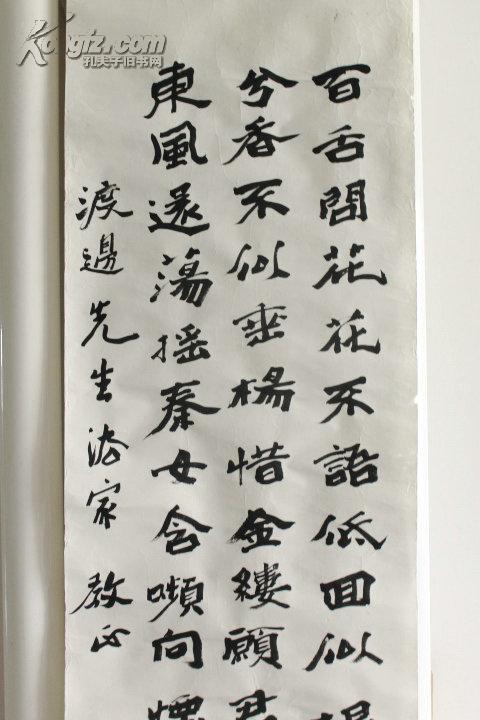 Kongfz.com
孔夫子旧书网
百舌問花花不語低回似
分香不似垂楊惜金縷願君
東風還蕩摇秦女含嚬向
渡邊先生法家教正